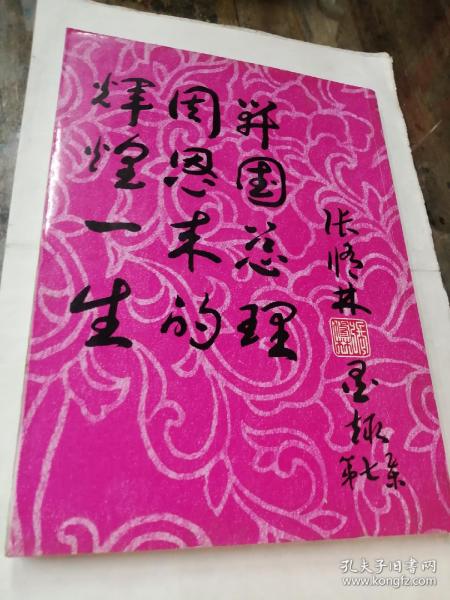 开国总理
周恩来的
辉煌一生
张林
墨趣
第七集
孔夫子旧书网
www.kongfz.com